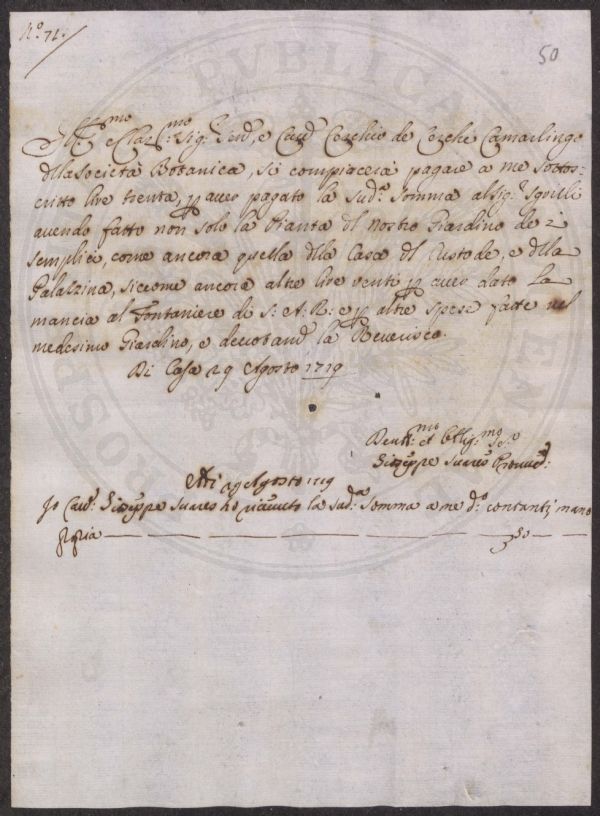 N.º 71.
50
Ill.mo e Clar.mo Sig.r Sen.re, e Cav.re Cerchio de Cerchi Camarlingo
della Società Botanica, si compiacerà pagare a me sottos-
critto lire trenta, p aver pagato la sud.a somma al Sig.r Sgrilli
avendo fatto non solo la Pianta del nostro Giardino de i
semplici, come ancora quella della Casa del Custode, e della
Palazzina, siccome ancora altre lire venti p aver dato la
mancia al Fontaniere di S: A: R: e p altre spese fatte nel
medesimo Giardino, e devotam.te la Reverisco.
Di Casa 29 Agosto 1719
Dev.mo et Obblig.mo Se.e
Giuseppe Suares Provved.
Adì 29 Agosto 1719
Io Cav.re Giuseppe Suares hò ricevuto la sud.a somma a me d.o contanti mano
ppria 50
PVBLICAE